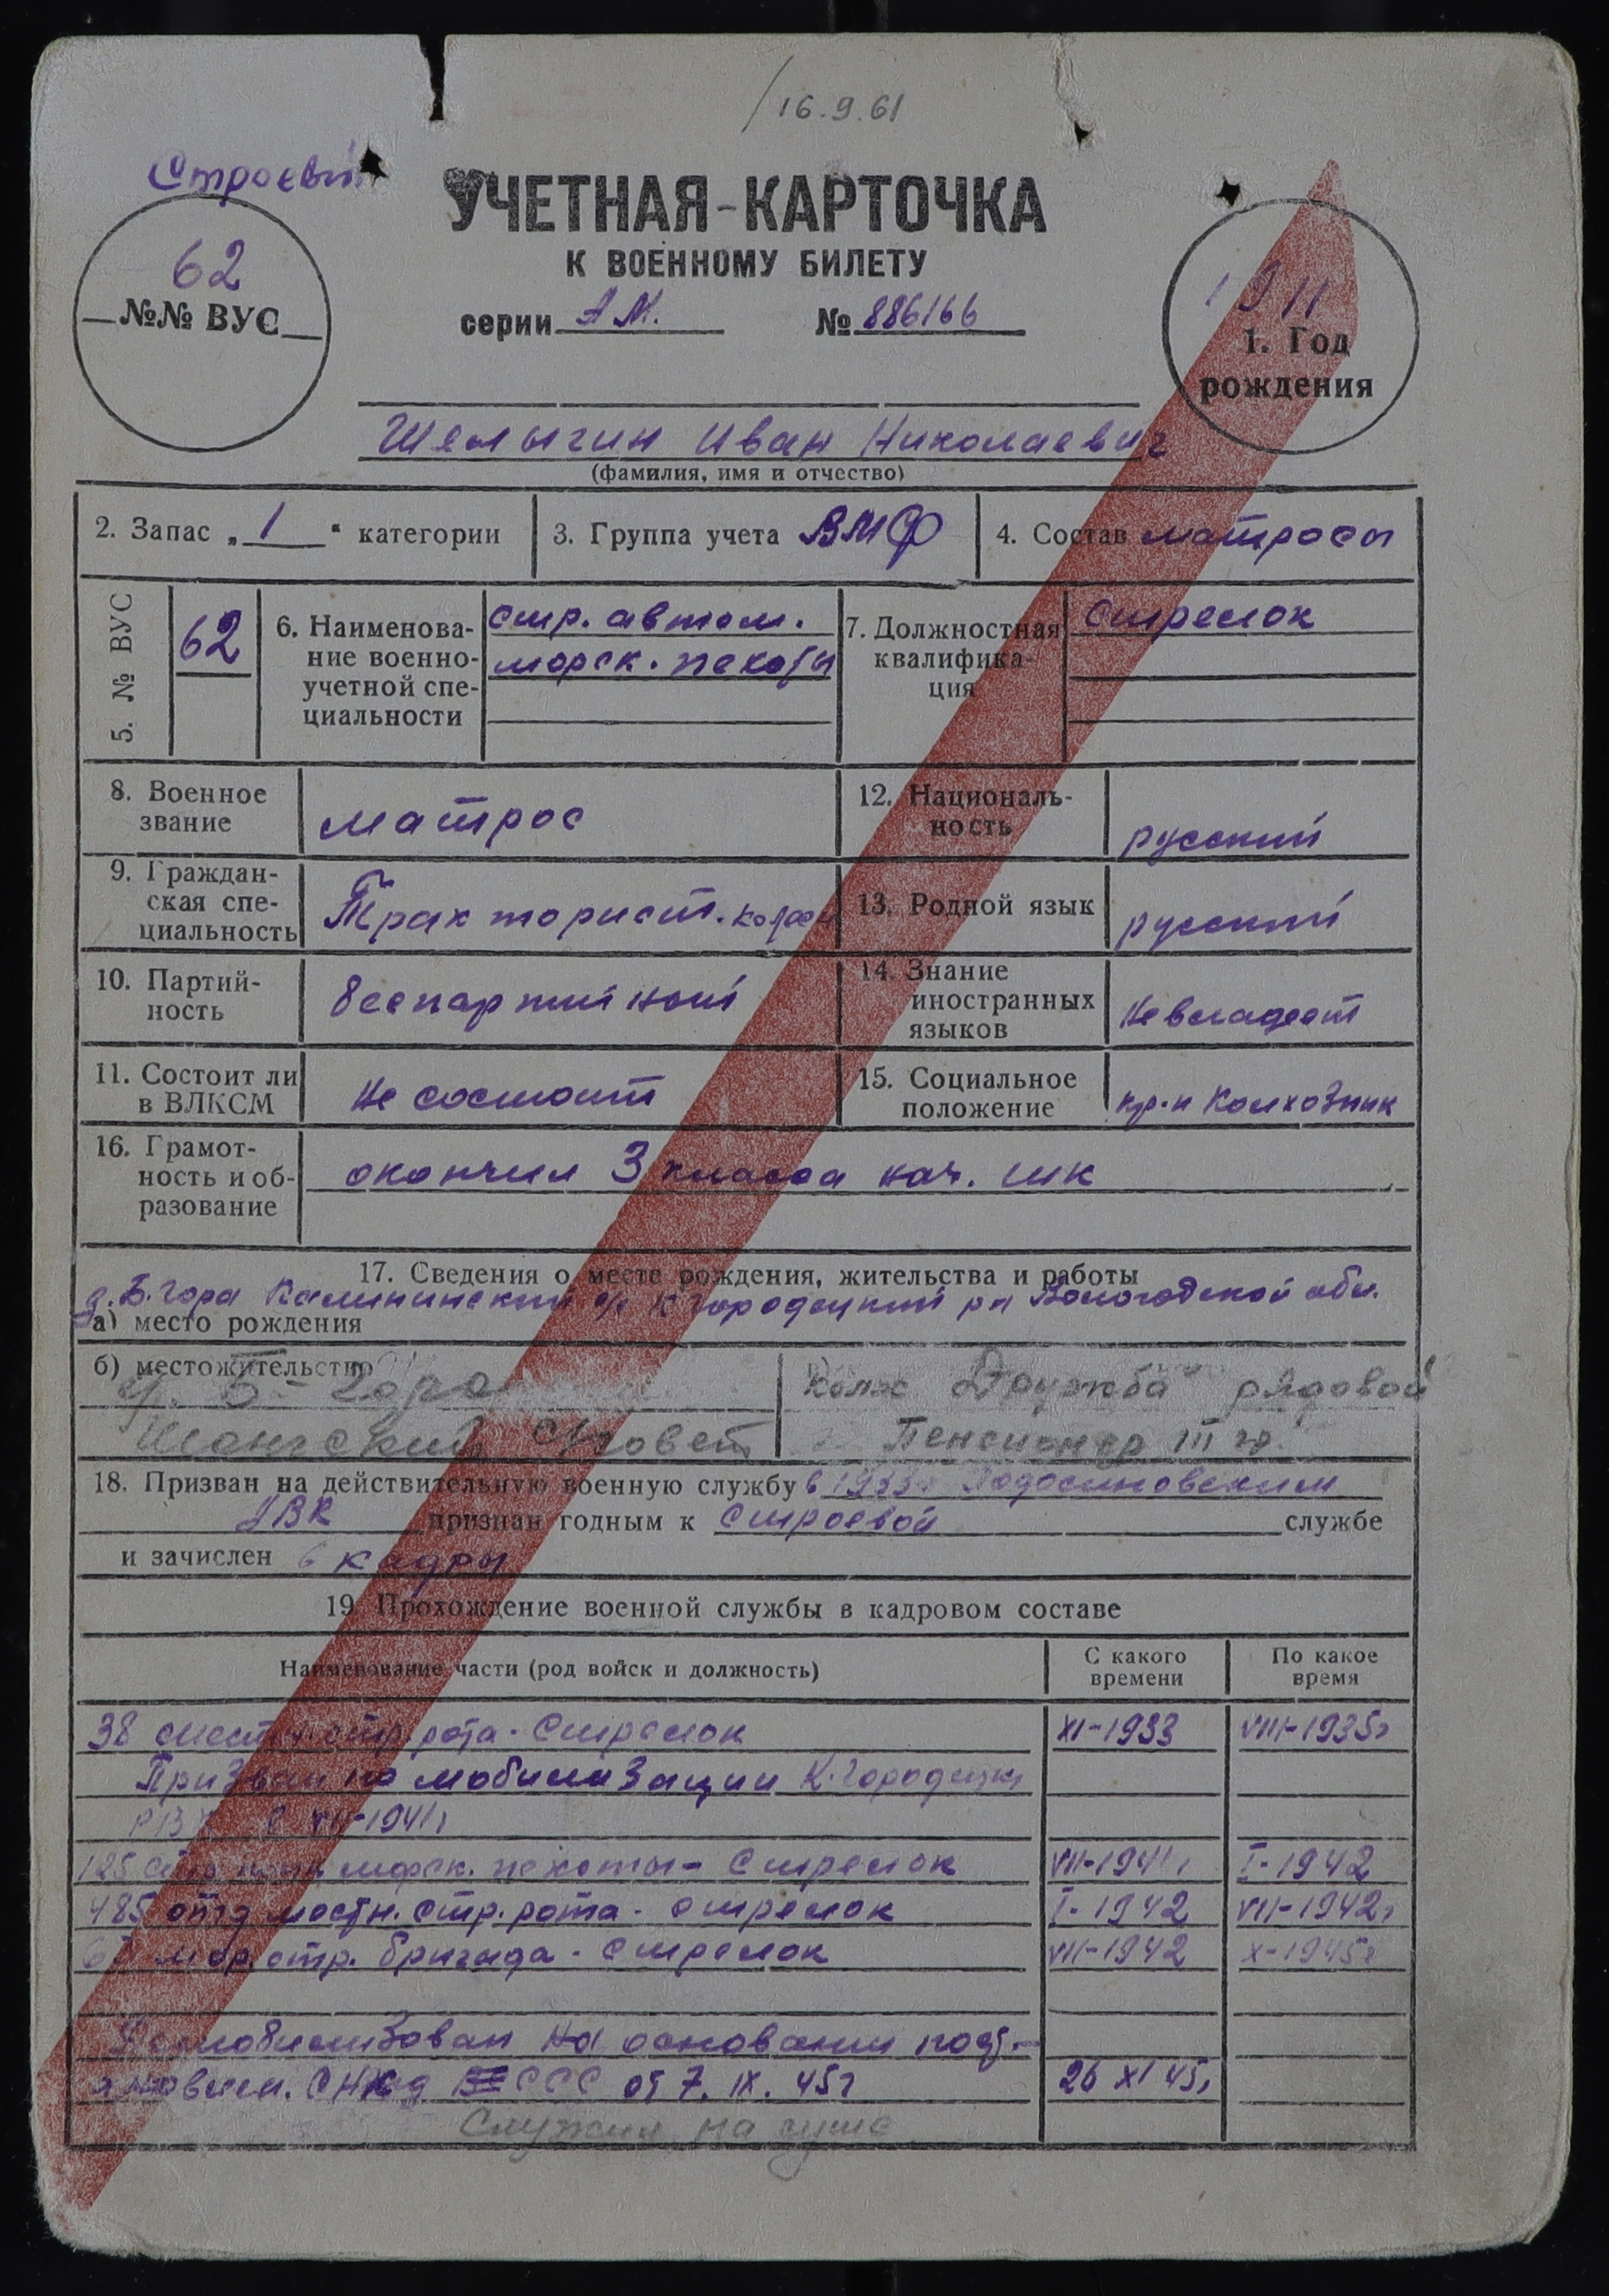 16.9.61
Строевой
УЧЕТНАЯ-КАРТОЧКА
К ВОЕННОМУ БИЛЕТУ
серии АМ. № 886166
62
№№ ВУС
1911
1. Год
рождения
Шелыгин Иван Николаевич
(фамилия, имя и отчество)
2. Запас „1“ категории
3. Группа учета ВМФ
4. Состав матросы
5. № ВУС
62
6. Наименова-
ние военно-
учетной спе-
циальности
стр. автом.
морск. пехоты
7. Должностная
квалифика-
ция
Стрелок
8. Военное
звание
матрос
12. Националь-
ность
русский
9. Граждан-
ская спе-
циальность
Тракторист.
13. Родной язык
русский
10. Партий-
ность
беспартийный
14. Знание
иностранных
языков
Не владеет
11. Состоит ли
в ВЛКСМ
Не состоит
15. Социальное
положение
кр-н Колхозник
16. Грамот-
ность и об-
разование
окончил 3 класса нач. шк
17. Сведения о месте рождения, жительства и работы
д. Б. Гора Калининский с/с К Городецкий р-н Вологодской обл.
а) место рождения
б) местожительство
д. Б- Гора
Шонгский С/Совет
в)
Колх „Дружба“ рядовой
Пенсионер III гр.
18. Призван на действительную военную службу в 1933г Подосиновским
РВК признан годным к Строевой службе
и зачислен в кадры
19. Прохождение военной службы в кадровом составе
Наименование части (род войск и должность)
С какого
времени
По какое
время
38 местн. стр. рота - Стрелок XI-1933 VIII-1935г
Призван по мобилизации К. Городецк
РВК в VII-1941г
125 морск. пехоты - Стрелок VII-1941г I-1942
485 отд местн. стр. рота - стрелок I-1942 VII-1942г
мор. стр. бригада - Стрелок VII-1942 X-1945г
Демобилизован на основании пост-
ановлен. СССР от 7. IX. 45г 26 XI 45г
Служил на суше